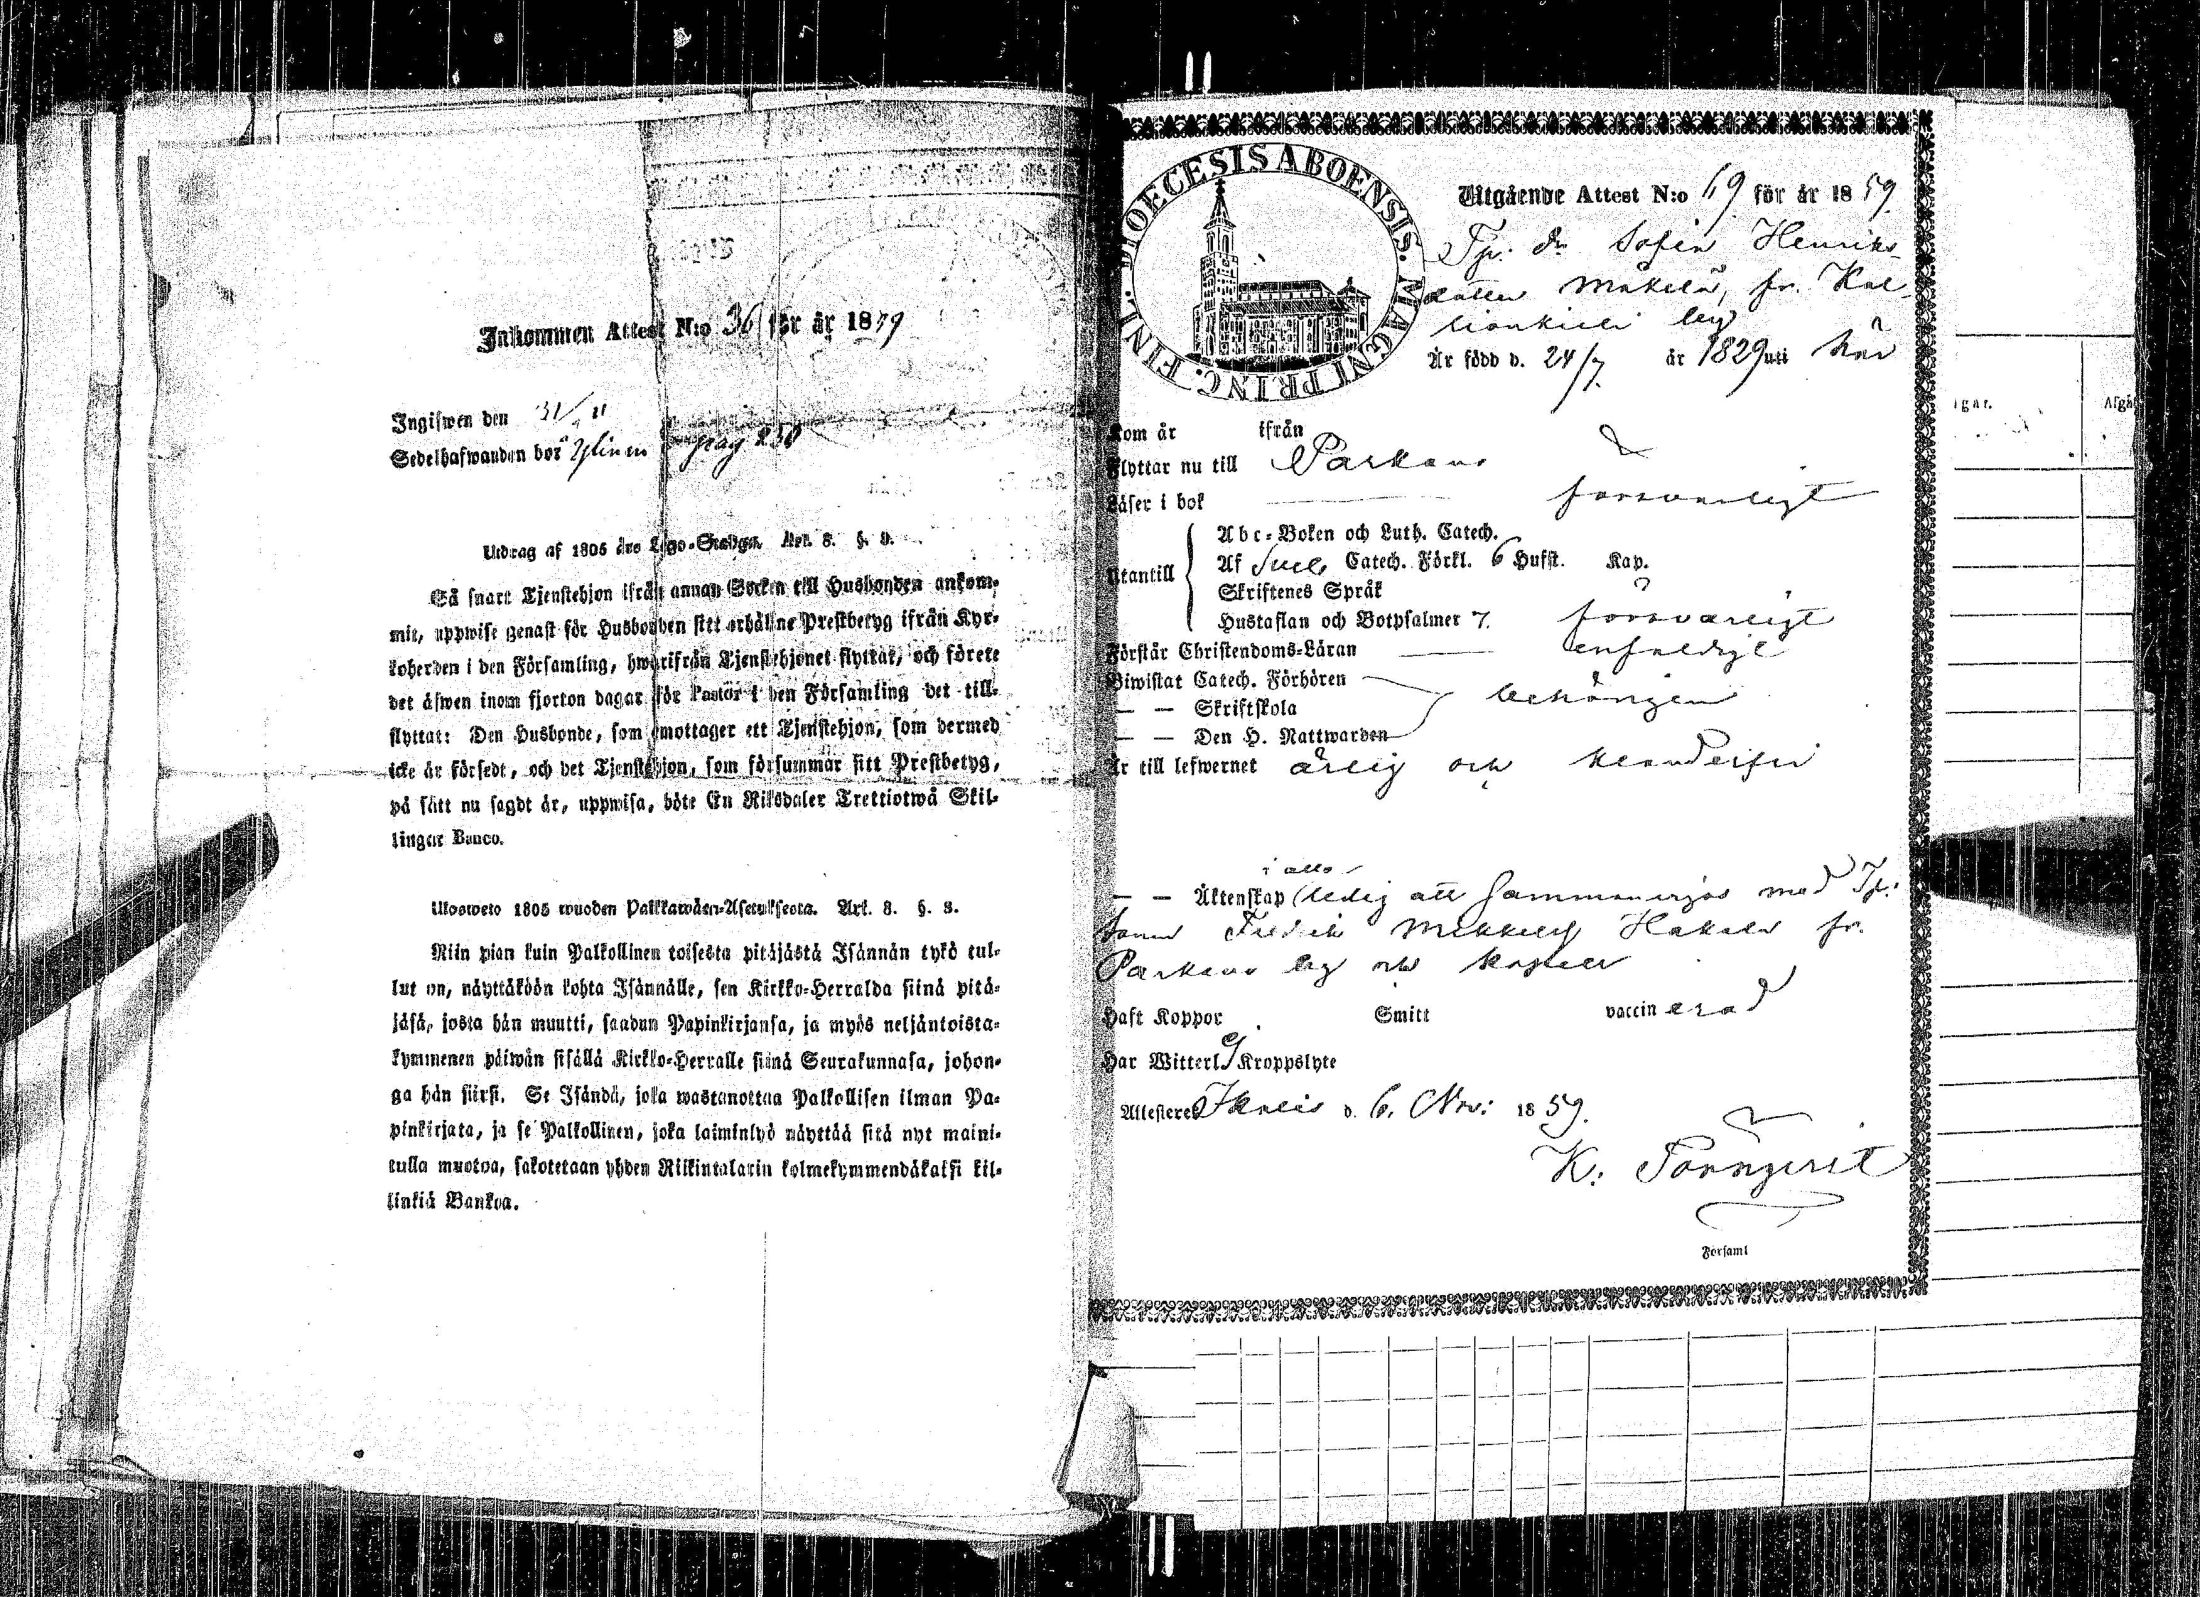 Inkommen Attest N:o 36 för år 1859
Ingifwen den 31/11
Sedelhafwanden bor Ylinen pag 230
Utdrag af 1805 års Lego-Stadga. Art. 8. §. 3.
Så snart Tjenstehjon ifrån annan Socken till Husbonden ankom-
mit, uppwise genast för Husbonden sitt erhållne Prestbetyg ifrån Kyr-
koherden i den Församling, hwarifrån Tjenstehjonet flyttat, och förete
det äfwen inom fjorton dagar för Pastor i den Församling det till-
flyttat: Den Husbonde, som emottager ett Tjenstehjon, som dermed
icke är försedt, och det Tjenstehjon, som försummar sitt Prestbetyg,
på sätt nu sagdt är, uppwisa, böte En Riksdaler Trettiotwå Skil-
lingar Banco.
Ulosweto 1805 wuoden Palkkawäen-Asetuksesta. Art. 8. §. 3.
Niin pian kuin Palkollinen toisesta pitäjästä Isännän tykö tul-
lut on, näyttäköön kohta Isännälle, sen Kirkko-Herralda siinä pitä-
jäsä, josta hän muutti, saadun Papinkirjansa, ja myös neljäntoista-
kymmenen päiwän sisällä Kirkko-Herralle siinä Seurakunnasa, johon-
ga hän siirsi. Se Isändä, joka wastanottaa Palkollisen ilman Pa-
pinkirjata, ja se Palkollinen, joka laiminlyö näyttää sitä nyt maini-
tulla muotoa, sakotetaan yhden Riikintalarin kolmekymmendäkaksi kil-
linkiä Bankoa.
FINL. DIOECESIS ABOENSIS. MAGNI PRINC.
Utgående Attest N:o 69 för år 1859
Tp. dr Sofia Henriks-
dotter Mäkelä, fr.
by
Är född d. 24/7 år 1829 uti här
Kom år ifrån
Flyttar nu till Parkano
Läser i bok försvarligt
Utantill
Abc-Boken och Luth. Catech.
Af Sveb. Catech. Förkl. 6 Hufst. Kap.
Skriftenes Språk
Hustaflan och Botpsalmer 7. försvarligt
Förstår Christendoms-Läran enfaldigt
Biwistat Catech. Förhören
— — Skriftskola behörigen
— — Den H. Nattwarden
Är till lefwernet ärlig och klanderfri
i allo
— — Äktenskap ledig att sammanvigas med Tp.
sonen Fredrik Hakala fr.
Parkano by och kapell
Haft Koppor Smitt vaccinerad
Har Witterl. Kroppslyte
Attesterer Ikalis d. 6. Nov: 1859.
K. Törnqvist
Församl
Afgå